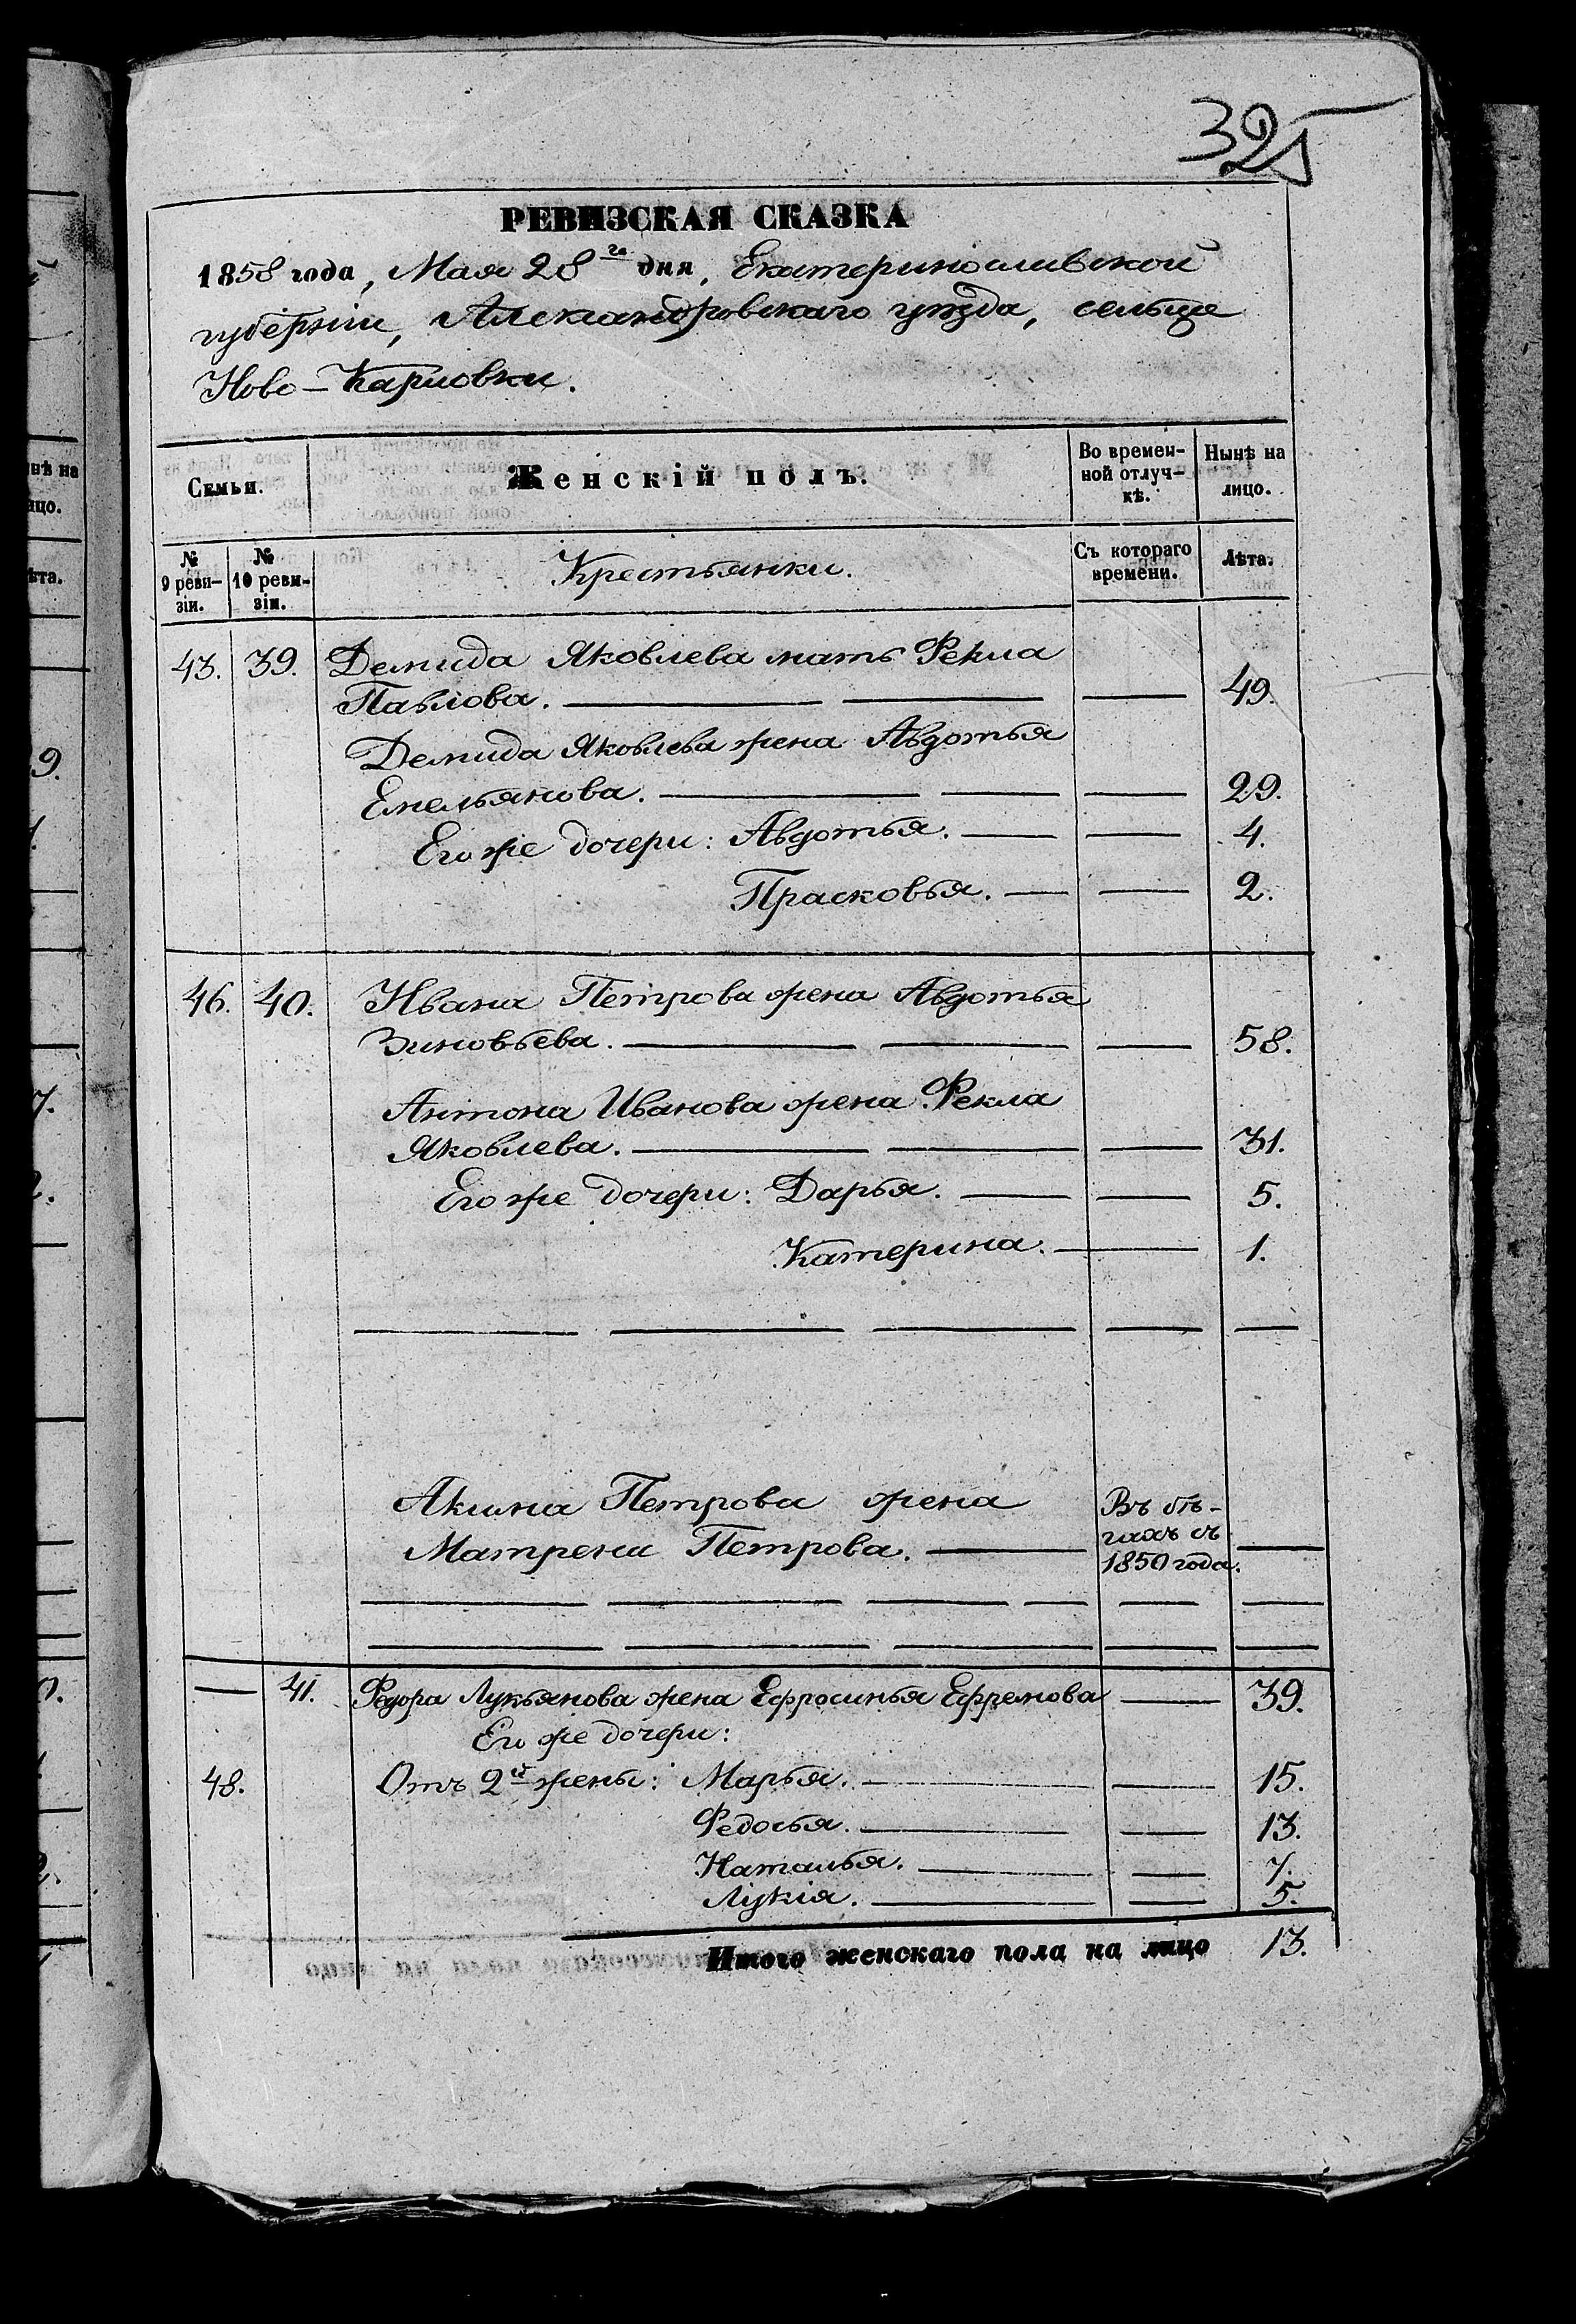 325
РЕВИЗСКАЯ СКАЗКА
1858 года, Мая 28го дня, Екатеринославской
губерніи, Александровскаго уѣзда, сельце
Ново-Карловки.
Семьи.
Женскій полъ.
Во времен-
ной отлуч-
кѣ.
Нынѣ на
лицо.
№
9 реви-
зіи.
№
10 реви-
зіи.
Крестьянки.
Съ котораго
времени.
Лѣта.
43. 39. Демида Яковлева мать Фекла
Павлова. — — — 49.
Демида Яковлева жена Авдотья
Емельянова. — — — 29.
Его же дочери: Авдотья. — — 4.
Прасковья. — — 2.
46. 40. Ивана Петрова жена Авдотья
Зиновьева. — — — 58.
Антона Иванова жена Фекла
Яковлева. — — — 31.
Его же дочери: Дарья. — — 5.
Катерина. — 1.
Акима Петрова жена
Матрена Петрова. —
Въ бѣ-
гахъ съ
1850 года.
— 41. Федора Лукьянова жена Ефросинья Ефремова — 39.
Его же дочери:
48. Отъ 2й жены: Марья. — — 15.
Федосья. — — 13.
Наталья. — — 7.
Лукія. — — 5.
Итого женскаго пола на лицо 13.